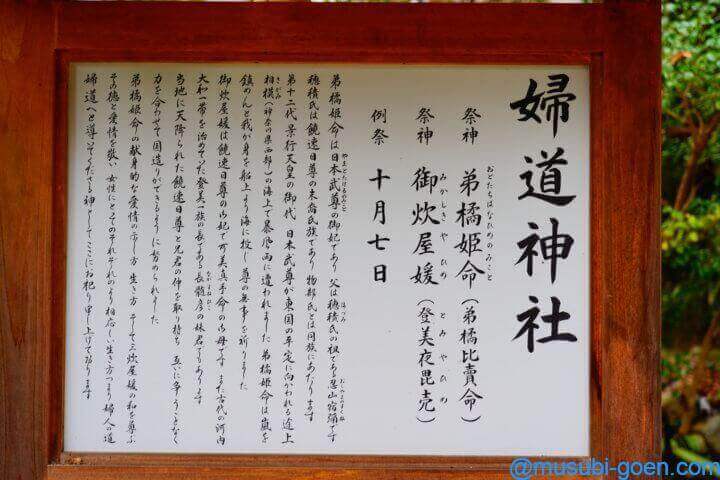 婦道神社
祭神 弟橘姫命(弟橘比賣命)
おとたちばなひめのみこと
祭神 御炊屋媛(登美夜毘売)
みかしきやひめ とみやひめ
例祭 十月七日
弟橘姫命は日本武尊の御妃であり 父は穂積氏の祖である忍山宿彌です
穂積氏は饒速日尊の末裔氏族であり 物部氏とは同族にあたります
第十二代景行天皇の御代 日本武尊が東国の平定に向かわれる途上
相模(神奈の県西部)の海上で暴風雨に遭われました 弟橘姫命は嵐を
鎮めんと我が身を船上より海に投じ 尊の無事を祈りました
御炊屋媛は饒速日尊のお妃で可美真手命のお母です また古代の河内
大和一帯を治めていた登美一族の長である長髄彦の妹君でもあります
当地に天降られた饒速日尊と兄君の仲を取り持ち 互いに争うことなく
力を合わせて国造りができるように努められました
弟橘姫命の献身的な愛情の示し方 生き方 そして三炊屋媛の和を尊ぶ
その徳と愛情を敬い 女性にとってのそれぞれのより相応しい生き方つまり婦人の道
婦道へと導いてくださる神としてここにお祀り申し上げております
@musubi-goen.com